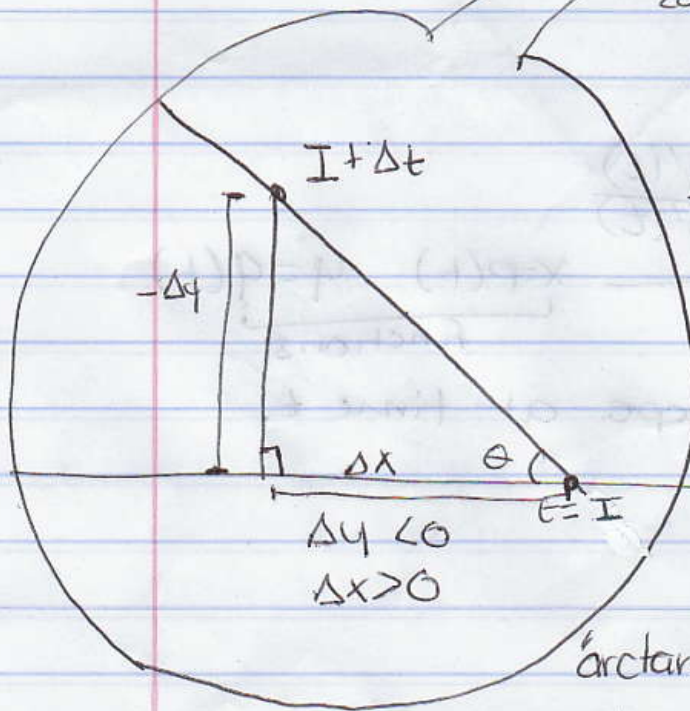 I + Δt
-Δy
Δx θ
t= I
Δy <0
Δx>0
arctan